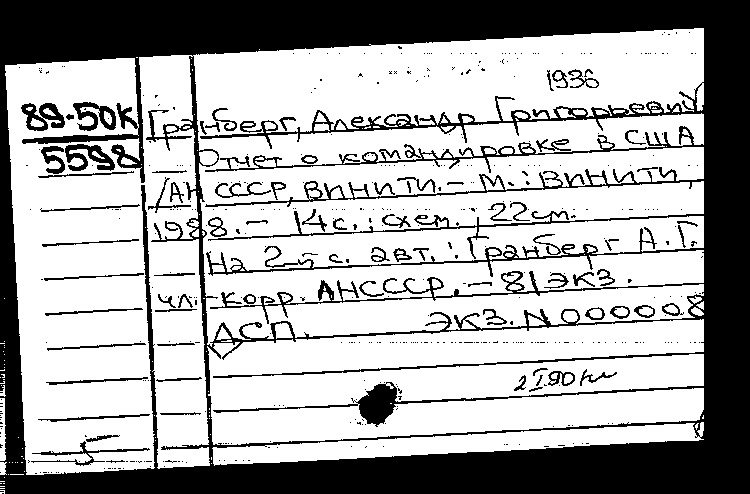 1936
89-50К
5598
Гранберг, Александр Григорьевич
Отчет о командировке в США
/АН СССР, ВИНИТИ.- М.: ВИНИТИ,
1988.- 14с.: схем.; 22см.
На 2-й с. авт.: Гранберг А.Г.
чл.-корр. АНСССР.-81экз.
ДСП. Экз.N000008
5